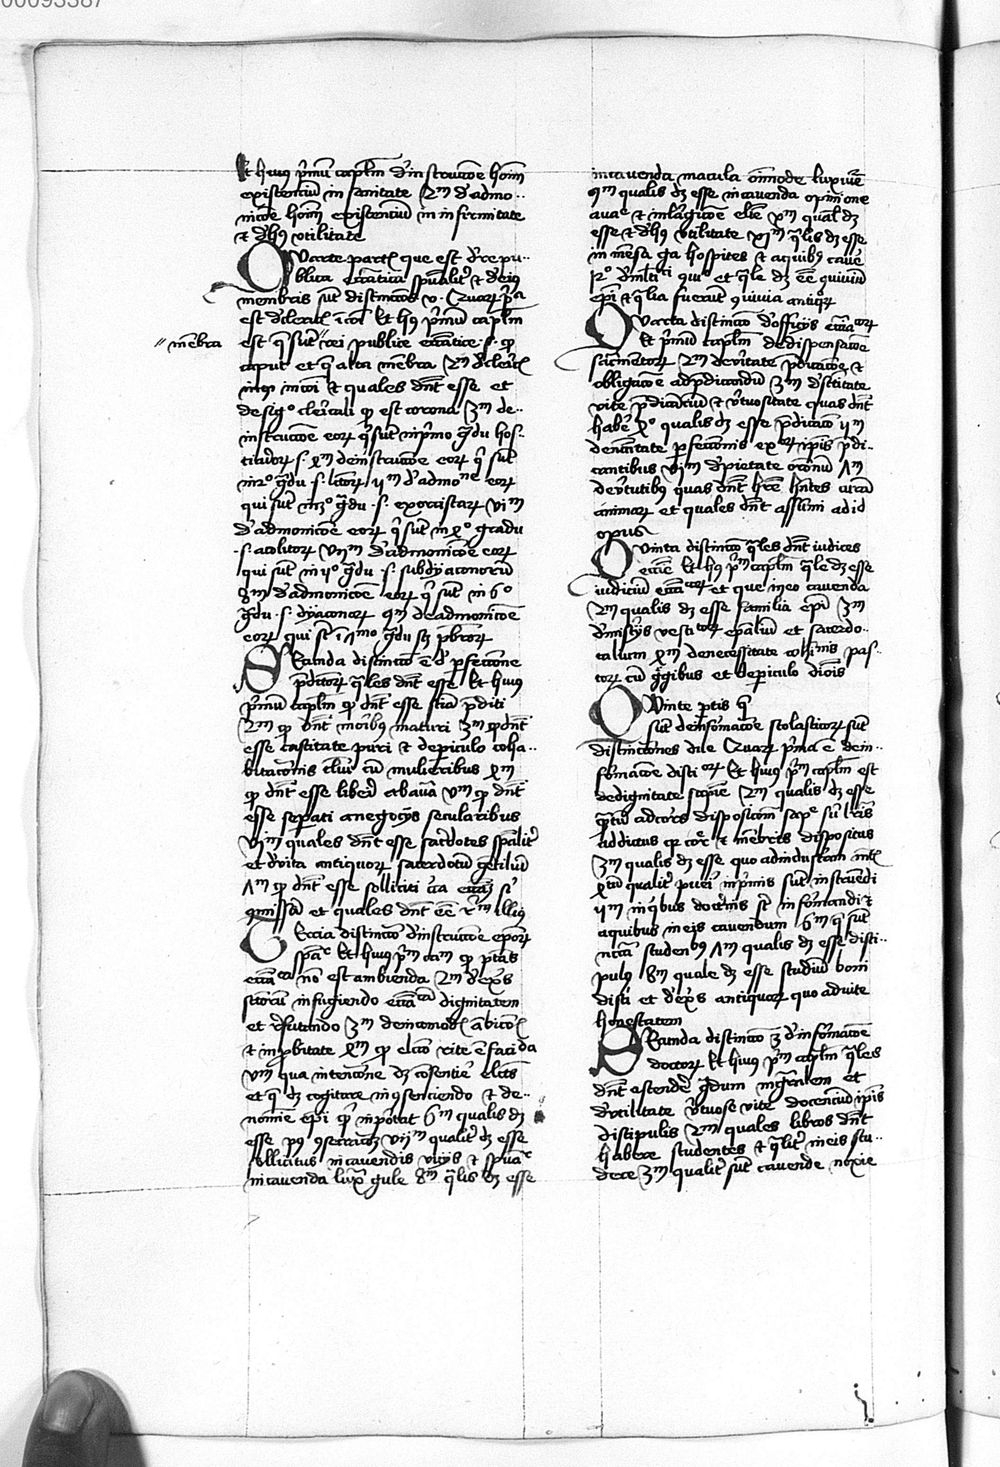 00093387
Et huius primum capitulum de instruccione hominum
existencium in sanitate 2m de admo..
nicione hominum existencium in infirmitate
et de huius utilitate
Quarte partis que est de re pu..
blica ecclesiastica spiritualiter et de eius
membris sunt distincciones v. Quarum prima
est de clericis in communi Et huius primum capitulum
// membra
est que sunt rei publice ecclesiastice .s. quod
caput et que alia membra 2m de clericis
in communi et quales debent esse et
de signo clericali quod est corona 3m de..
instruccione eorum qui sunt in primo gradu hos..
tiariorum .s. 4m de instruccione eorum qui sunt
in 2o gradu .s. lectorum 5m de admonicione eorum
qui sunt in 3o gradu .s. exorcistarum vim
de admonicione eorum qui sunt in 4o gradu
.s. acolitorum viim de admonicione eorum
qui sunt in 5o gradu .s. subdyaconorum
8m de admonicione eorum qui sunt in 6o
gradu .s. dyaconorum 9m de admonicione
eorum qui sunt in 7mo gradu scilicet presbiterorum
Secunda distinccio est de perfeccione
predictorum quales debent esse Et huius
primum capitulum quod debent esse sciencia prediti
2m quod debent moribus maturi 3m quod debent
esse castitate puri et de periculo coha..
bitacionis clericis cum mulieribus 4m
quod debent esse liberi ab avaricia vm quod debent
esse seperati a negociis secularibus
vim quales debent esse sacerdotes specialiter
et de vita antiquorum sacerdotum gentilium
7m quod debent esse solliciti circa ecclesiam sibi
commissam et quales debent esse rectores illius
Tercia distinccio de instruccione episcoporum
specialiter Et huius primum capitulum quod prelatas
ecclesiastica non est ambienda 2m de exemplis
sanctorum in fugiendo ecclesiasticam dignitatem
et refutando 3m de incommodis ambicionis
et improbitate 4m quod eleccio rite est facienda
vm qua intencione debet consentire electus
et que debet cogitare in consenciendo et de..
nomine episcopi quid importat 6m qualis debet
esse post consecracionem viim qualiter debet esse
sollicitus in cavendis viciis et specialiter
in cavenda luxu gule 8m qualis debet esse
in cavenda macula omnimode luxurie
9m qualis debet esse in cavenda opinione
avaricie et in largicione elemosine xm qualis debet
esse et de huius utilitate xim qualis debet esse
in mensa quia hospites et a quibus cavere
12o de multitudine et quale debet esse convivium
episcopi et qualia fuerunt convivia antiquorum
Quarta distinccio de officiis ecclesiasticorum
Et primum capitulum de dispensacione
sacramentorum 2m de veritate predicacionis et
obligacione ad predicandum 3m de sanctitate
vite predicancium et virtuositate quas debent
habere 4o qualis debet esse predicacio 5m
de unitate perfeccionis ex parte ipsis predi..
cantibus vim de pietate oracionum 7m
de virtutibus quas debent habere habentes curam
animarum et quales debent assumi ad id
opus
Quinta distinccio quales debent iudices
ecclesie Et huius primum capitulum quale debet esse
iudicium ecclesiasticorum et que in eo cavenda
2m qualis debet esse familia episcopi 3m
de misteriis vestimentorum episcopalium et sacerdo..
talium 4m de necessitate communionis pas..
torum cum gregibus et de periculo divisionis
Quinte partis que
sunt de informacione scolasticorum sunt
distincciones due Quarum prima est de in..
formacione discipulorum Et huius primum capitulum est
de dignitate sapiencie 2m qualis debet esse
quantum ad corporis disposicionem sapiencie sive literis
addictus quod corpore et membris dispositus
3m qualis debet esse quo ad industriam mentis
4m qualiter pueri in primis sunt instruendi
5m in quibus doctrinis sunt informandi et
a quibus in eis cavendum 6m que sunt
necessaria studentibus 7m qualis debet esse disci..
pulus 8m quale debet esse studium boni
discipuli et de exemplis antiquorum quo ad vite
honestatem
Secunda distinccio 3 de informacione
doctorum Et huius primum capitulum quales
debent ascendere gradum magistralem et
de utilitate virtuose vite docencium ipsis
discipulis 2m quales libros debent
habere studentes et qualiter in eis stu..
dere 3m qualiter sunt cavende noxie